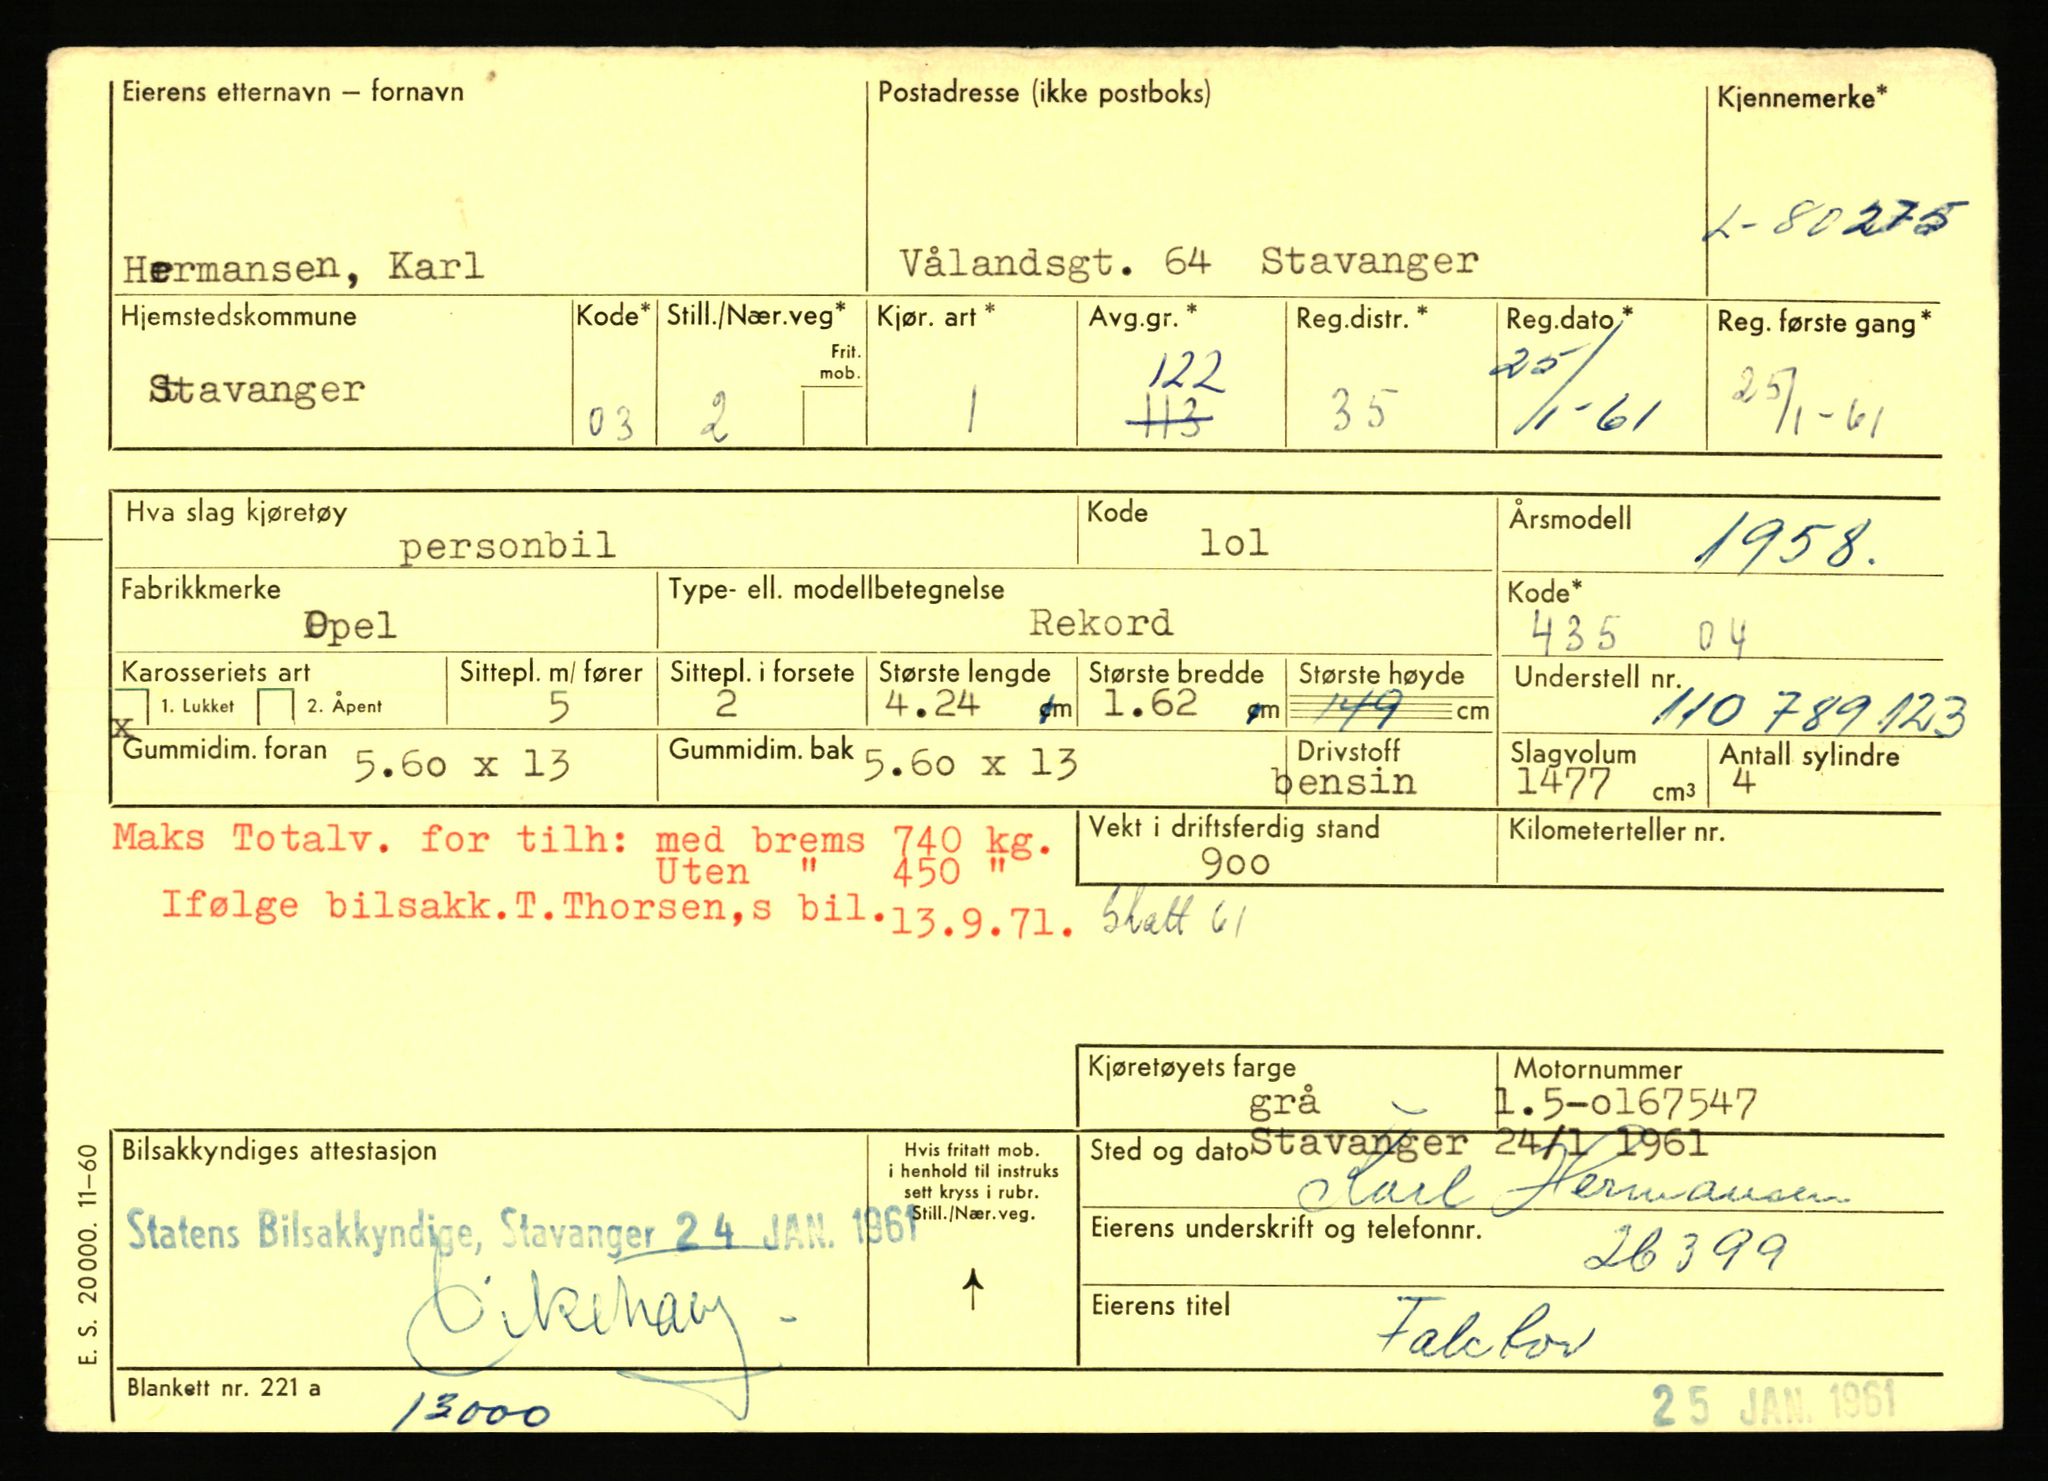 Eierens etternavn – fornavn
Postadresse (ikke postboks)
Kjennemerke*
L-80275
Hermansen, Karl
Vålandsgt. 64 Stavanger
Hjemstedskommune
Kode*
Still./Nær.veg*
Kjør. art*
Avg.gr.*
Reg.distr.*
Reg.dato*
Reg. første gang*
Frit.
mob.
Stavanger
03
2
1
122
113
35
25/1-61
25/1-61
Hva slag kjøretøy
personbil
Kode
lol
Årsmodell
1958.
Fabrikkmerke
Opel
Type- ell. modellbetegnelse
Rekord
Kode*
435 04
Karosseriets art
x 1. Lukket 2. Åpent
Sittepl. m/ fører
5
Sittepl. i forsete
2
Største lengde
4.24 m
Største bredde
1.62 m
Største høyde
149 cm
Understell nr.
110 789 123
Gummidim. foran 5.60 x 13
Gummidim. bak 5.60 x 13
Drivstoff
bensin
Slagvolum
1477 cm³
Antall sylindre
4
Maks Totalv. for tilh: med brems 740 kg.
Uten " 450 "
Ifølge bilsakk.T.Thorsen,s bil.13.9.71.
Vekt i driftsferdig stand
900
Kilometerteller nr.
61
Kjøretøyets farge
grå
Motornummer
1.5-o167547
Bilsakkyndiges attestasjon
Hvis fritatt mob.
i henhold til instruks
sett kryss i rubr.
Still./Nær.veg.
Sted og dato Stavanger 24/1 1961
Karl Hermansen
Statens Bilsakkyndige, Stavanger 24 JAN. 1961
Eierens underskrift og telefonnr.
26399
Eierens titel
Faktor
E. S. 20000. 11-60
Blankett nr. 221 a
13000
25 JAN. 1961